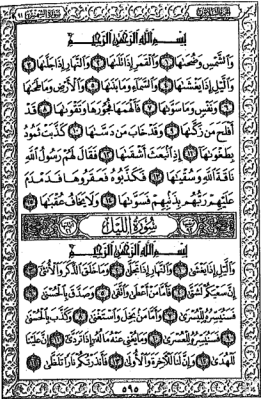 بِسْمِ اللَّهِ الرَّحْمَٰنِ الرَّحِيمِ
وَالشَّمْسِ وَضُحَاهَا ١ وَالْقَمَرِ إِذَا تَلَاهَا ٢ وَالنَّهَارِ إِذَا جَلَّاهَا ٣
وَاللَّيْلِ إِذَا يَغْشَاهَا ٤ وَالسَّمَاءِ وَمَا بَنَاهَا ٥ وَالْأَرْضِ وَمَا طَحَاهَا
٦ وَنَفْسٍ وَمَا سَوَّاهَا ٧ فَأَلْهَمَهَا فُجُورَهَا وَتَقْوَاهَا ٨ قَدْ
أَفْلَحَ مَن زَكَّاهَا ٩ وَقَدْ خَابَ مَن دَسَّاهَا ١٠ كَذَّبَتْ ثَمُودُ
بِطَغْوَاهَا ١١ إِذِ انبَعَثَ أَشْقَاهَا ١٢ فَقَالَ لَهُمْ رَسُولُ اللَّهِ
نَاقَةَ اللَّهِ وَسُقْيَاهَا ١٣ فَكَذَّبُوهُ فَعَقَرُوهَا فَدَمْدَمَ
عَلَيْهِمْ رَبُّهُم بِذَنبِهِمْ فَسَوَّاهَا ١٤ وَلَا يَخَافُ عُقْبَاهَا ١٥
سُورَةُ اللَّيْلِ
بِسْمِ اللَّهِ الرَّحْمَٰنِ الرَّحِيمِ
وَاللَّيْلِ إِذَا يَغْشَىٰ ١ وَالنَّهَارِ إِذَا تَجَلَّىٰ ٢ وَمَا خَلَقَ الذَّكَرَ وَالْأُنثَىٰ ٣
إِنَّ سَعْيَكُمْ لَشَتَّىٰ ٤ فَأَمَّا مَنْ أَعْطَىٰ وَاتَّقَىٰ ٥ وَصَدَّقَ بِالْحُسْنَىٰ
٦ فَسَنُيَسِّرُهُ لِلْيُسْرَىٰ ٧ وَأَمَّا مَن بَخِلَ وَاسْتَغْنَىٰ ٨ وَكَذَّبَ بِالْحُسْنَىٰ
٩ فَسَنُيَسِّرُهُ لِلْعُسْرَىٰ ١٠ وَمَا يُغْنِي عَنْهُ مَالُهُ إِذَا تَرَدَّىٰ ١١ إِنَّ عَلَيْنَا
لَلْهُدَىٰ ١٢ وَإِنَّ لَنَا لَلْآخِرَةَ وَالْأُولَىٰ ١٣ فَأَنذَرْتُكُمْ نَارًا تَلَظَّىٰ ١٤
٥٩٥